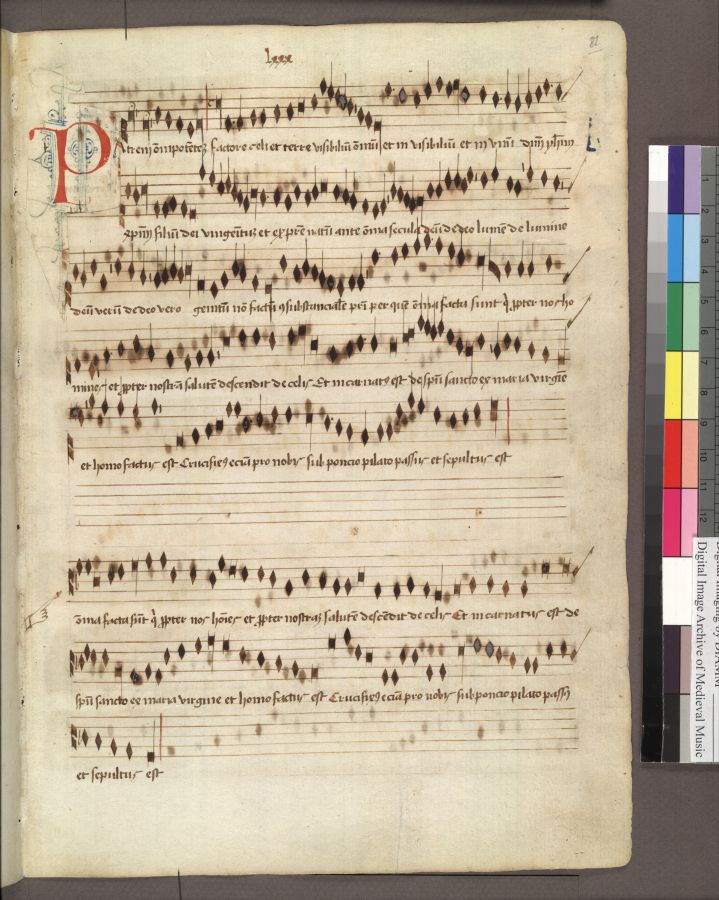 lxxx
81
Patrem om̄ipotētez factore celi et terre visibiliū om̄iū et in visibiliū et in vnū dn̄m yhm̄
xpm̄ filiū dei vnigenitū et ex pr̄e natū ante om̄ia secula deū de deo lumē de lumine
deū verū de deo vero genitū nō factū ꝯsubstancialē pr̄i per quē om̄ia facta sunt q̇ ꝓpter nos ho
mines et ꝓpter nostrā salutē descendit de celis Et incarnatꝰ est de sp̄u sancto ex maria virgīe
et homo factus est Crucifixꝰ eciā pro nobis sub poncio pilato passus et sepultus est
om̄ia facta sūt q̇ ꝓpter nos hōies et ꝓpter nostraz salutē descēdit de celis Et incarnatus est de
sp̄u sancto ex maria virgine et homo factus est Crucifixꝰ eciā pro nobis sub poncio pilato passꝰ
et sepultus est
Digital Image Archive of Medieval Music